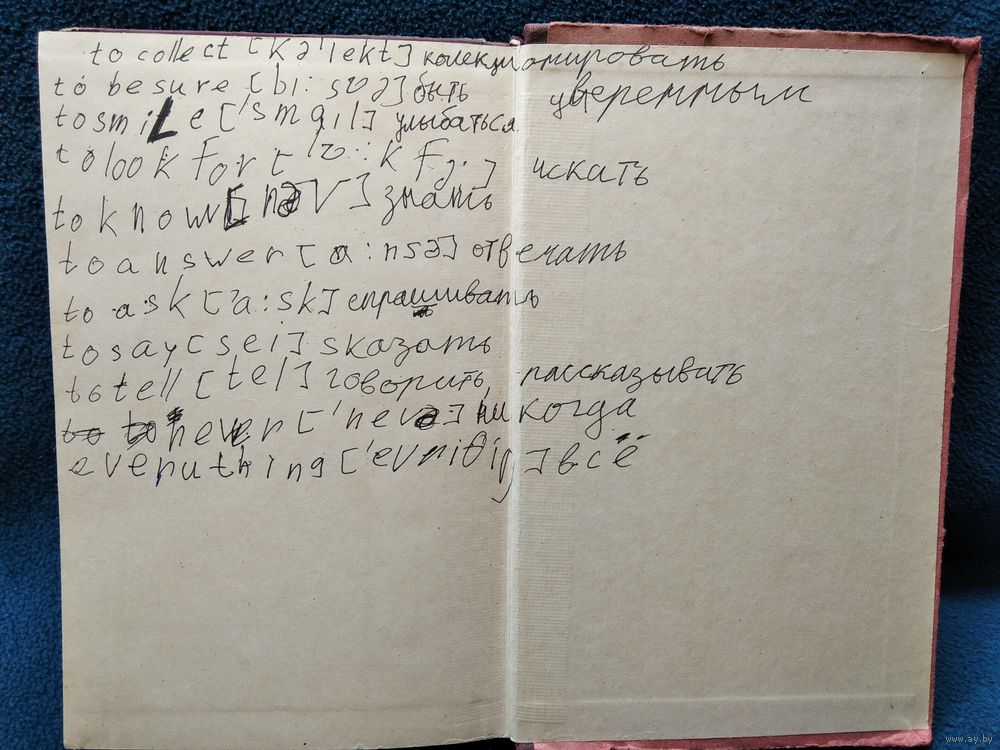 to collect [kə'lekt] колекционировать
to be sure [bi: ʃʊə] быть уверенным
to smiLe ['smaɪl] улыбаться
to look for [lʊ:k fɔ:] искать
to know [nəʊ] знать
to answer [a:nsə] отвечать
to ask ['a:sk] спрашивать
to say [sei] sказать
to tell [tel] говорить, рассказывать
never ['nevə] никогда
everuthing ['evriθiŋ] всё
www.ay.by